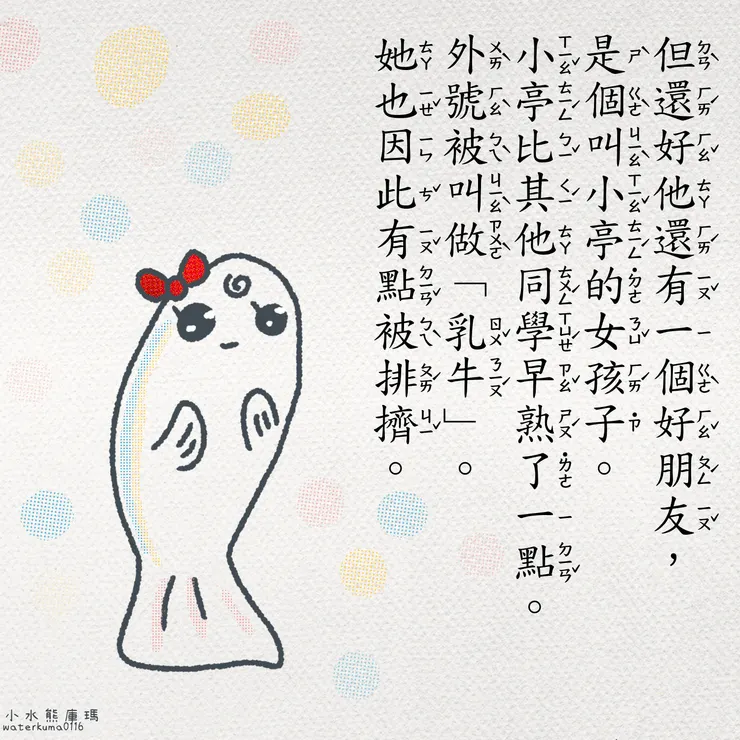 但還好他還有一個好朋友，
是個叫小亭的女孩子。
小亭比其他同學早熟了一點。
外號被叫做「乳牛」。
她也因此有點被排擠。
小水熊庫瑪
waterkuma0116